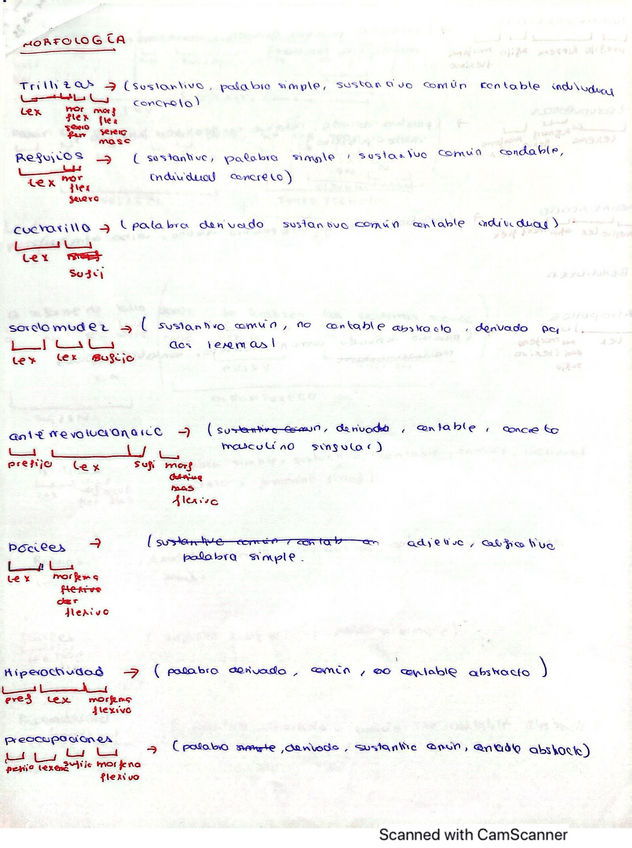 MORFOLOGÍA
Trillizas → (sustantivo, palabra simple, sustantivo común contable individual
concreto)
Lex mor morf
flex flex
genero
fem masc
Refujios → (sustantivo, palabra simple, sustantivo común contable,
individual concreto)
Lex mor
flex
cucharilla → (palabra derivado sustantivo común contable individual)
Lex
sufij
sordomudez → (sustantivo común, no contable abstracto, derivado por
dos lexemas)
Lex Lex sufijo
antirrevolucionario → (sustantivo común, derivado, contable, concreto
masculino singular)
prefijo Lex sufi morf
mas
flexivo
→ (sustantivo común, contab adjetivo, calificativo
palabra simple.
Lex morfema
flexivo
der
flexivo
Hiperactividad → (palabra derivado, común, no contable abstracto)
pref Lex morfema
flexivo
preocupaciones → (palabra simple, derivado, sustantivo común, contable abstracto)
lexema sufijo morfema
flexivo
Scanned with CamScanner